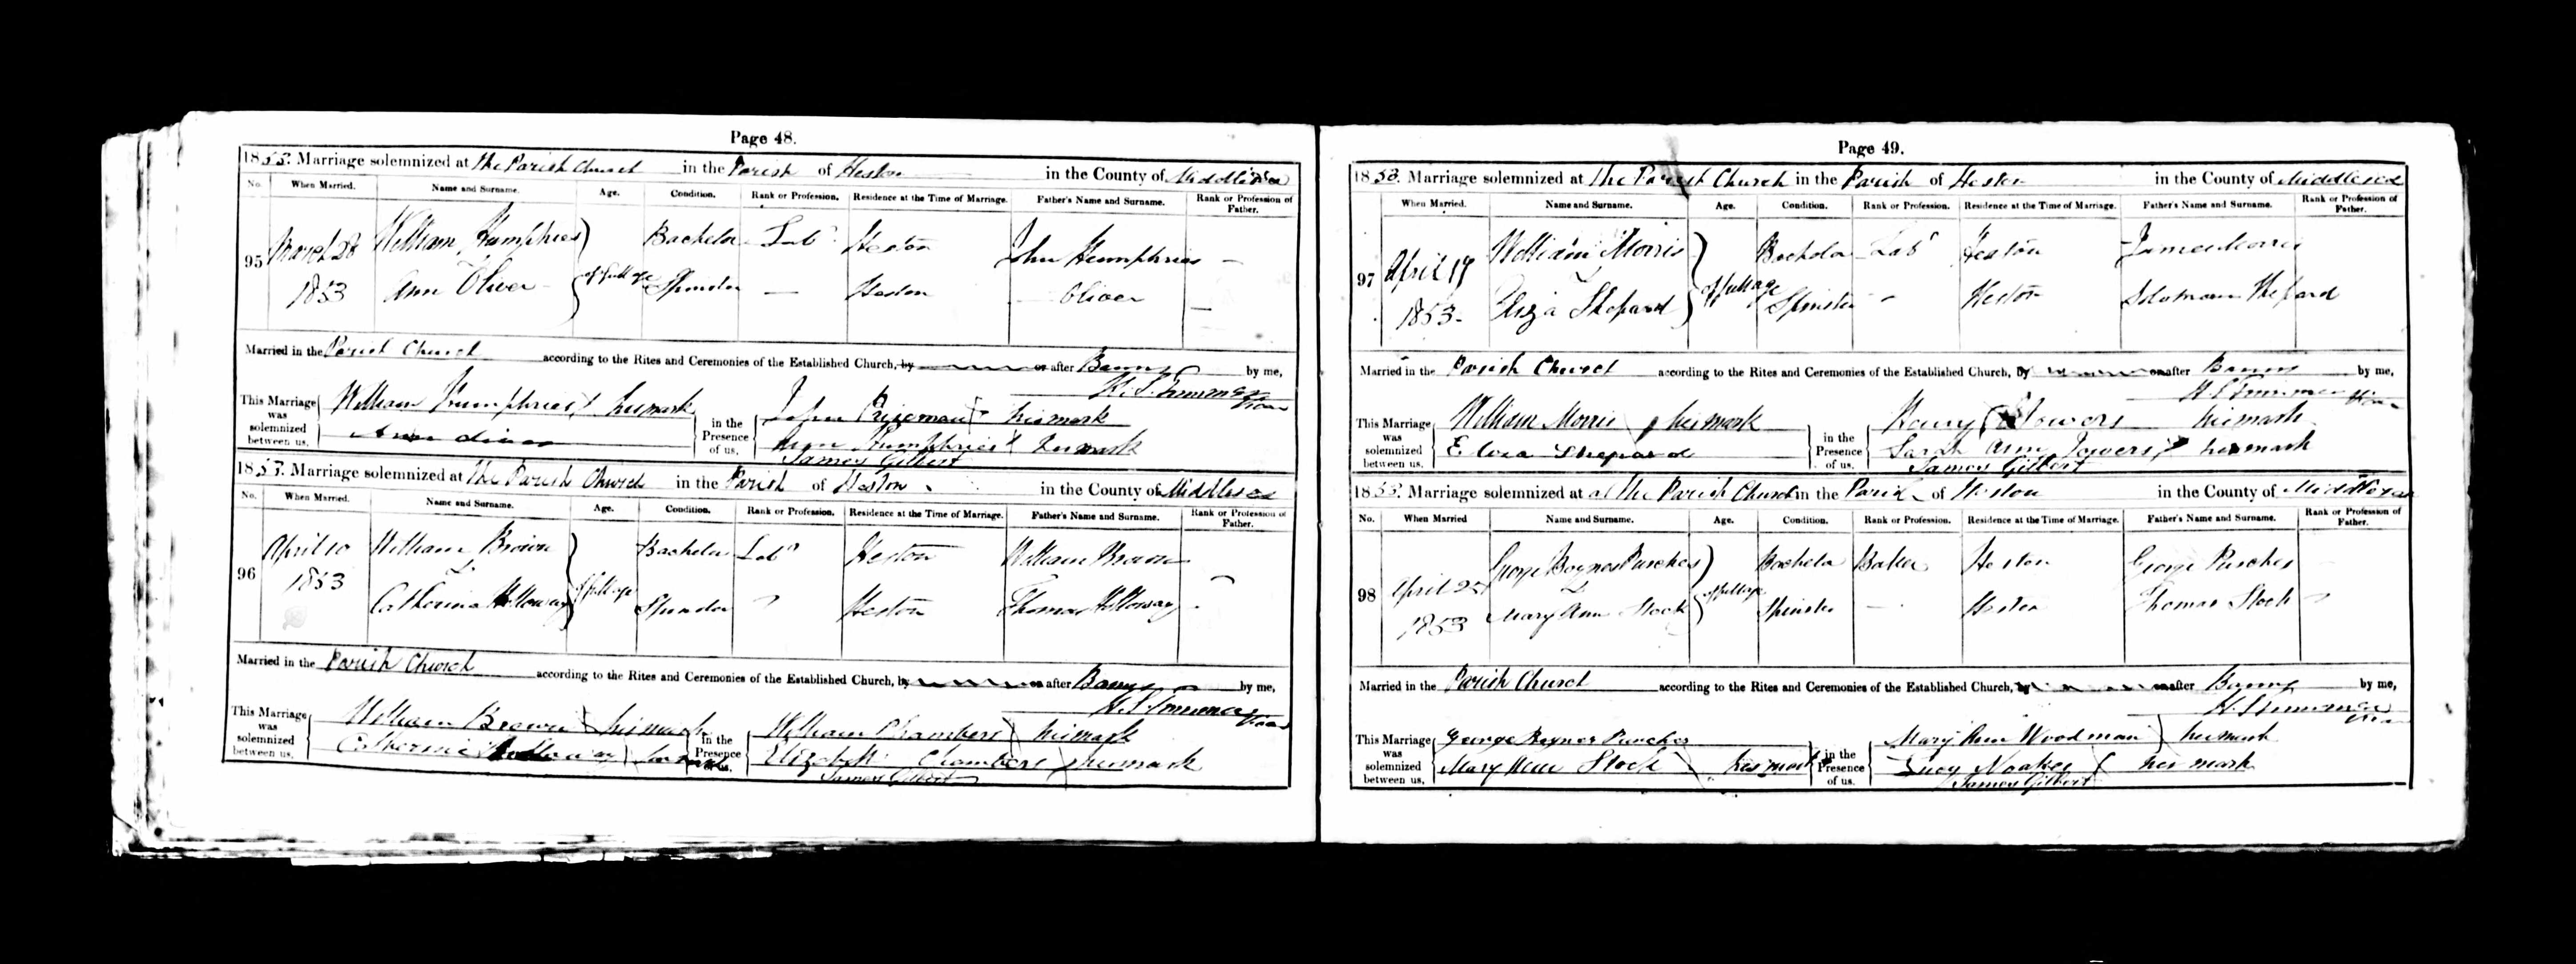 Page 48.
1853. Marriage solemnized at the Parish Church in the Parish of Heston in the County of Middlesex
No. When Married. Name and Surname. Age. Condition. Rank or Profession. Residence at the Time of Marriage. Father's Name and Surname. Rank or Profession of Father.
95 March 28 William Humphries Bachelor Labr Heston John Humphries —
1853 Ann Oliver of full age Spinster — Heston — Oliver —
Married in the Parish Church according to the Rites and Ceremonies of the Established Church, by or after Banns by me,
H. S. Trimmer Vicar
This Marriage was solemnized between us, William Humphries his mark
in the Presence of us, John Prizeman his mark
Ann Humphries her mark
James Gilbert
1853. Marriage solemnized at the Parish Church in the Parish of Heston in the County of Middlesex
No. When Married. Name and Surname. Age. Condition. Rank or Profession. Residence at the Time of Marriage. Father's Name and Surname. Rank or Profession of Father.
96 April 10 William Brown Bachelor Labr Heston William Brown
1853 & Catherine Holloway of full age Spinster Heston Thomas Holloway
Married in the Parish Church according to the Rites and Ceremonies of the Established Church, by or after Banns by me,
H. S. Trimmer Vicar
This Marriage was solemnized between us, William Brown his mark
Catherine Holloway her mark
in the Presence of us, William Chambers his mark
Elizabeth Chambers her mark
James Gilbert
Page 49.
1853. Marriage solemnized at the Parish Church in the Parish of Heston in the County of Middlesex
No. When Married. Name and Surname. Age. Condition. Rank or Profession. Residence at the Time of Marriage. Father's Name and Surname. Rank or Profession of Father.
97 April 17 William Morris Bachelor Labr Heston James Morris
1853 & Eliza Shepard of full age Spinster Heston Solomon Shepard
Married in the Parish Church according to the Rites and Ceremonies of the Established Church, by or after Banns by me,
H. S. Trimmer Vicar
This Marriage was solemnized between us, William Morris his mark
Eliza Shepard
in the Presence of us, Henry Powers his mark
Sarah Ann Powers her mark
James Gilbert
1853. Marriage solemnized at at the Parish Church in the Parish of Heston in the County of Middlesex
No. When Married Name and Surname. Age. Condition. Rank or Profession. Residence at the Time of Marriage. Father's Name and Surname. Rank or Profession of Father.
98 April 25 George Baynes Purches Bachelor Baker Heston George Purches
1853 & Mary Ann Stock of full age Spinster — Heston Thomas Stock
Married in the Parish Church according to the Rites and Ceremonies of the Established Church, by or after Banns by me,
H. S. Trimmer Vicar
This Marriage was solemnized between us, George Baynes Purches
Mary Ann Stock her mark
in the Presence of us, Mary Ann Woodman her mark
Lucy Noakes her mark
James Gilbert